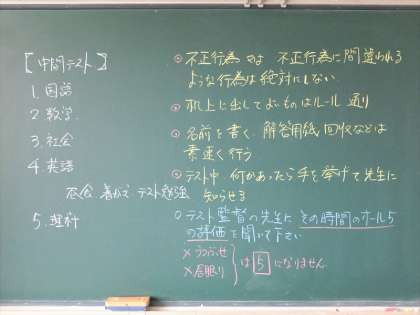 【中間テスト】
1.国語
2.数学
3.社会
4.英語
給食 着がえ テスト勉強
5.理科
◎不正行為 or 不正行為に間違われる
ような行為は絶対にしない
◎机上に出してよいものはルール通り
◎名前を書く、解答用紙回収などは
素速く行う
◎テスト中、何かあったら手を挙げて先生に
知らせる
○テスト監督の先生に その時間のオール5
の評価を聞いて下さい
×うつぶせ
×居眠り
は 5 になりません